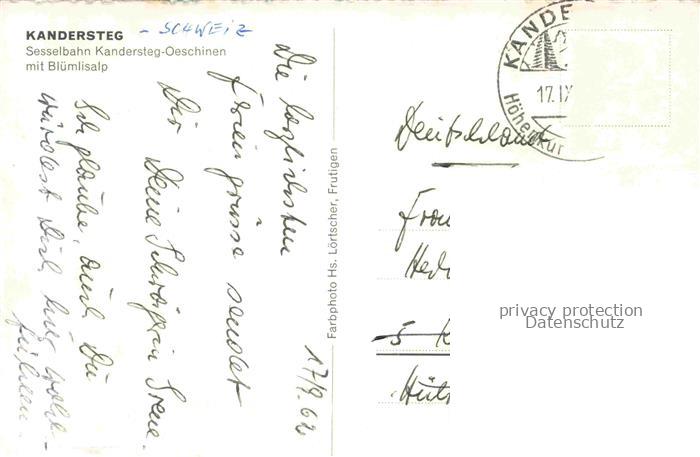 KANDERSTEG - SCHWEIZ
Sesselbahn Kandersteg-Oeschinen
mit Blümlisalp
17/9.62
Die herzlichsten
Feriengrüsse sendet
Dir Deine Schwägerin Irene.
Ich glaube, auch Du
würdest Dich hier wohl-
fühlen.
Farbphoto Hs. Lörtscher, Frutigen
KANDE
17.IX
Höhenkur
Deutschland
Frau
Hed
5 K
Hüt
privacy protection
Datenschutz